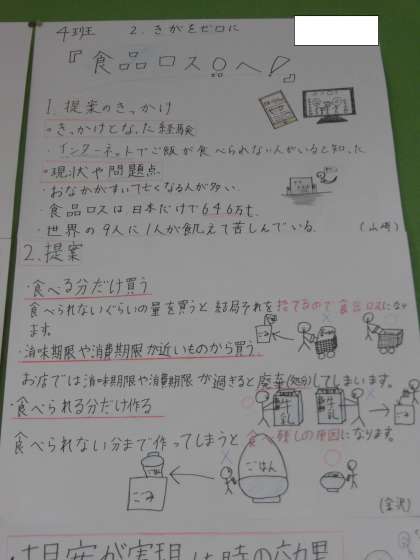 4班 2. きがをゼロに
『食品ロス0へ!』
1. 提案のきっかけ
・きっかけとなった経験
・インターネットでご飯が食べられない人がいると知った
・現状や問題点
・おなかがすいて亡くなる人が多い
・食品ロスは日本だけで646万t.
・世界の9人に1人が飢えて苦しんでいる.
(山崎)
2. 提案
・食べる分だけ買う
食べられないぐらいの量を買うと結局それを捨てるので食品ロスになり
ます.
ごみ
・消味期限や消費期限が近いものから買う.
お店では消味期限や消費期限が過ぎると廃棄(処分)してしまいます。
・食べられる分だけ作る
牛乳
牛乳
食べられない分まで作ってしまうと食べ残しの原因になります。
ごみ
ごはん
(金沢)
提案が実現した時の効果